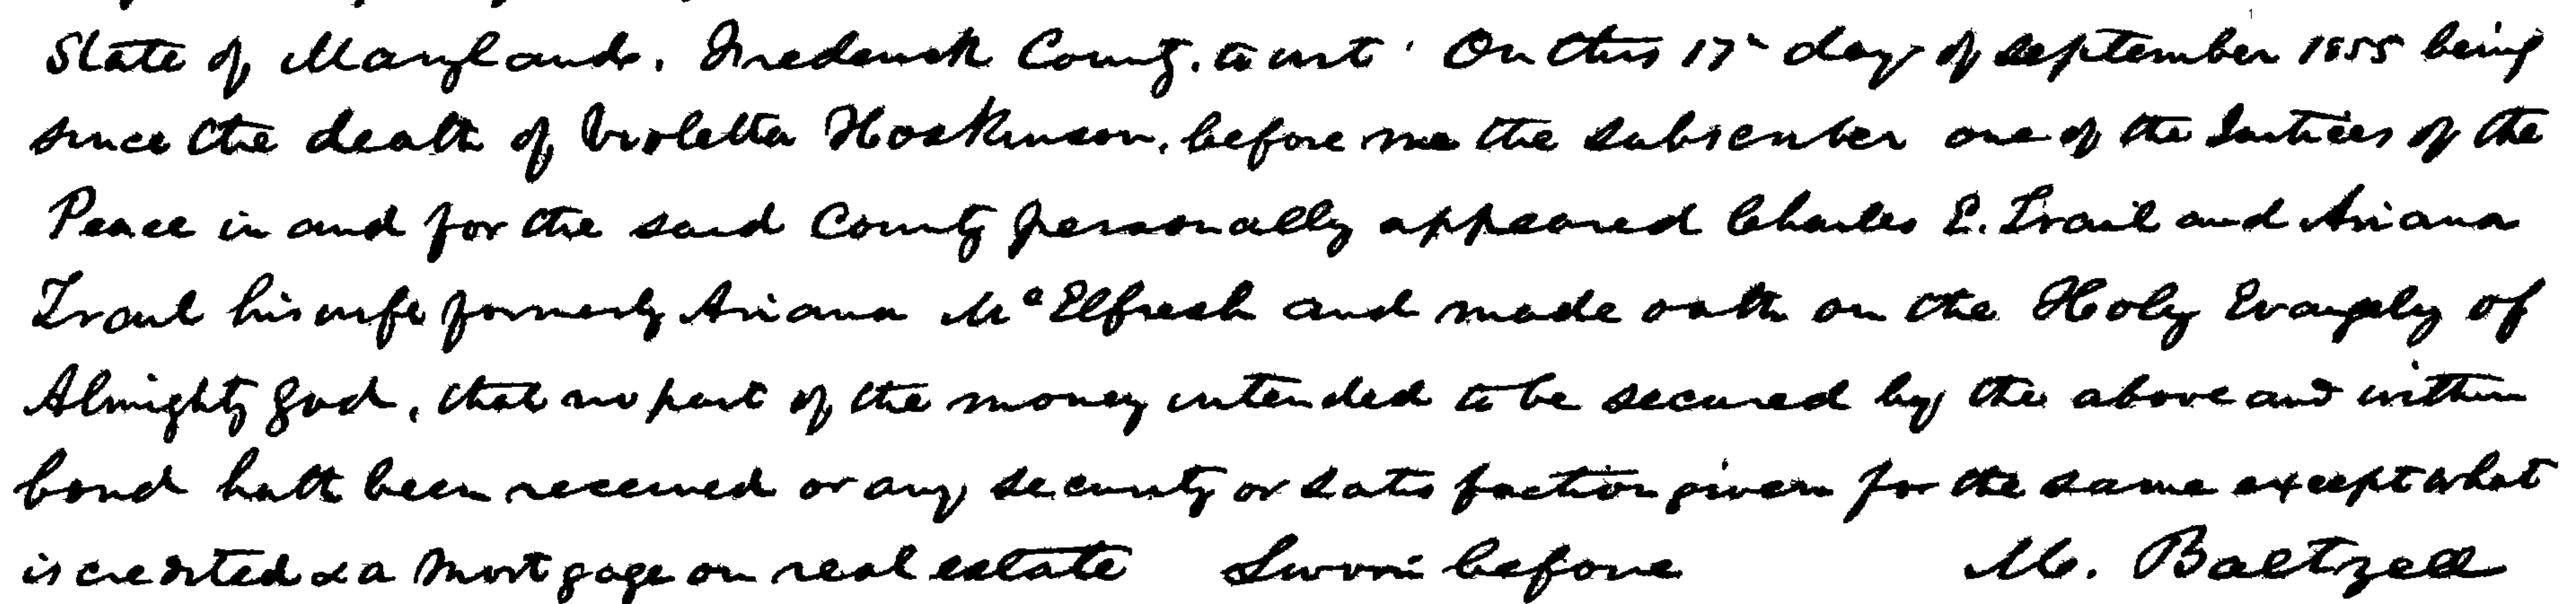 State of Maryland, Frederick County, to wit. On this 17th day of September 1855 being
since the death of Violetta Hoskinson, before me the subscriber one of the Justices of the
Peace in and for the said County personally appeared Charles E. Trail and Ariana
Trail his wife formerly Ariana McElfresh and made oath on the Holy Evangely of
Almighty God, that no part of the money intended to be secured by the above and within
bond hath been received or any security or satisfaction given for the same except what
is credited & a Mortgage on real estate Sworn before M. Baltzell